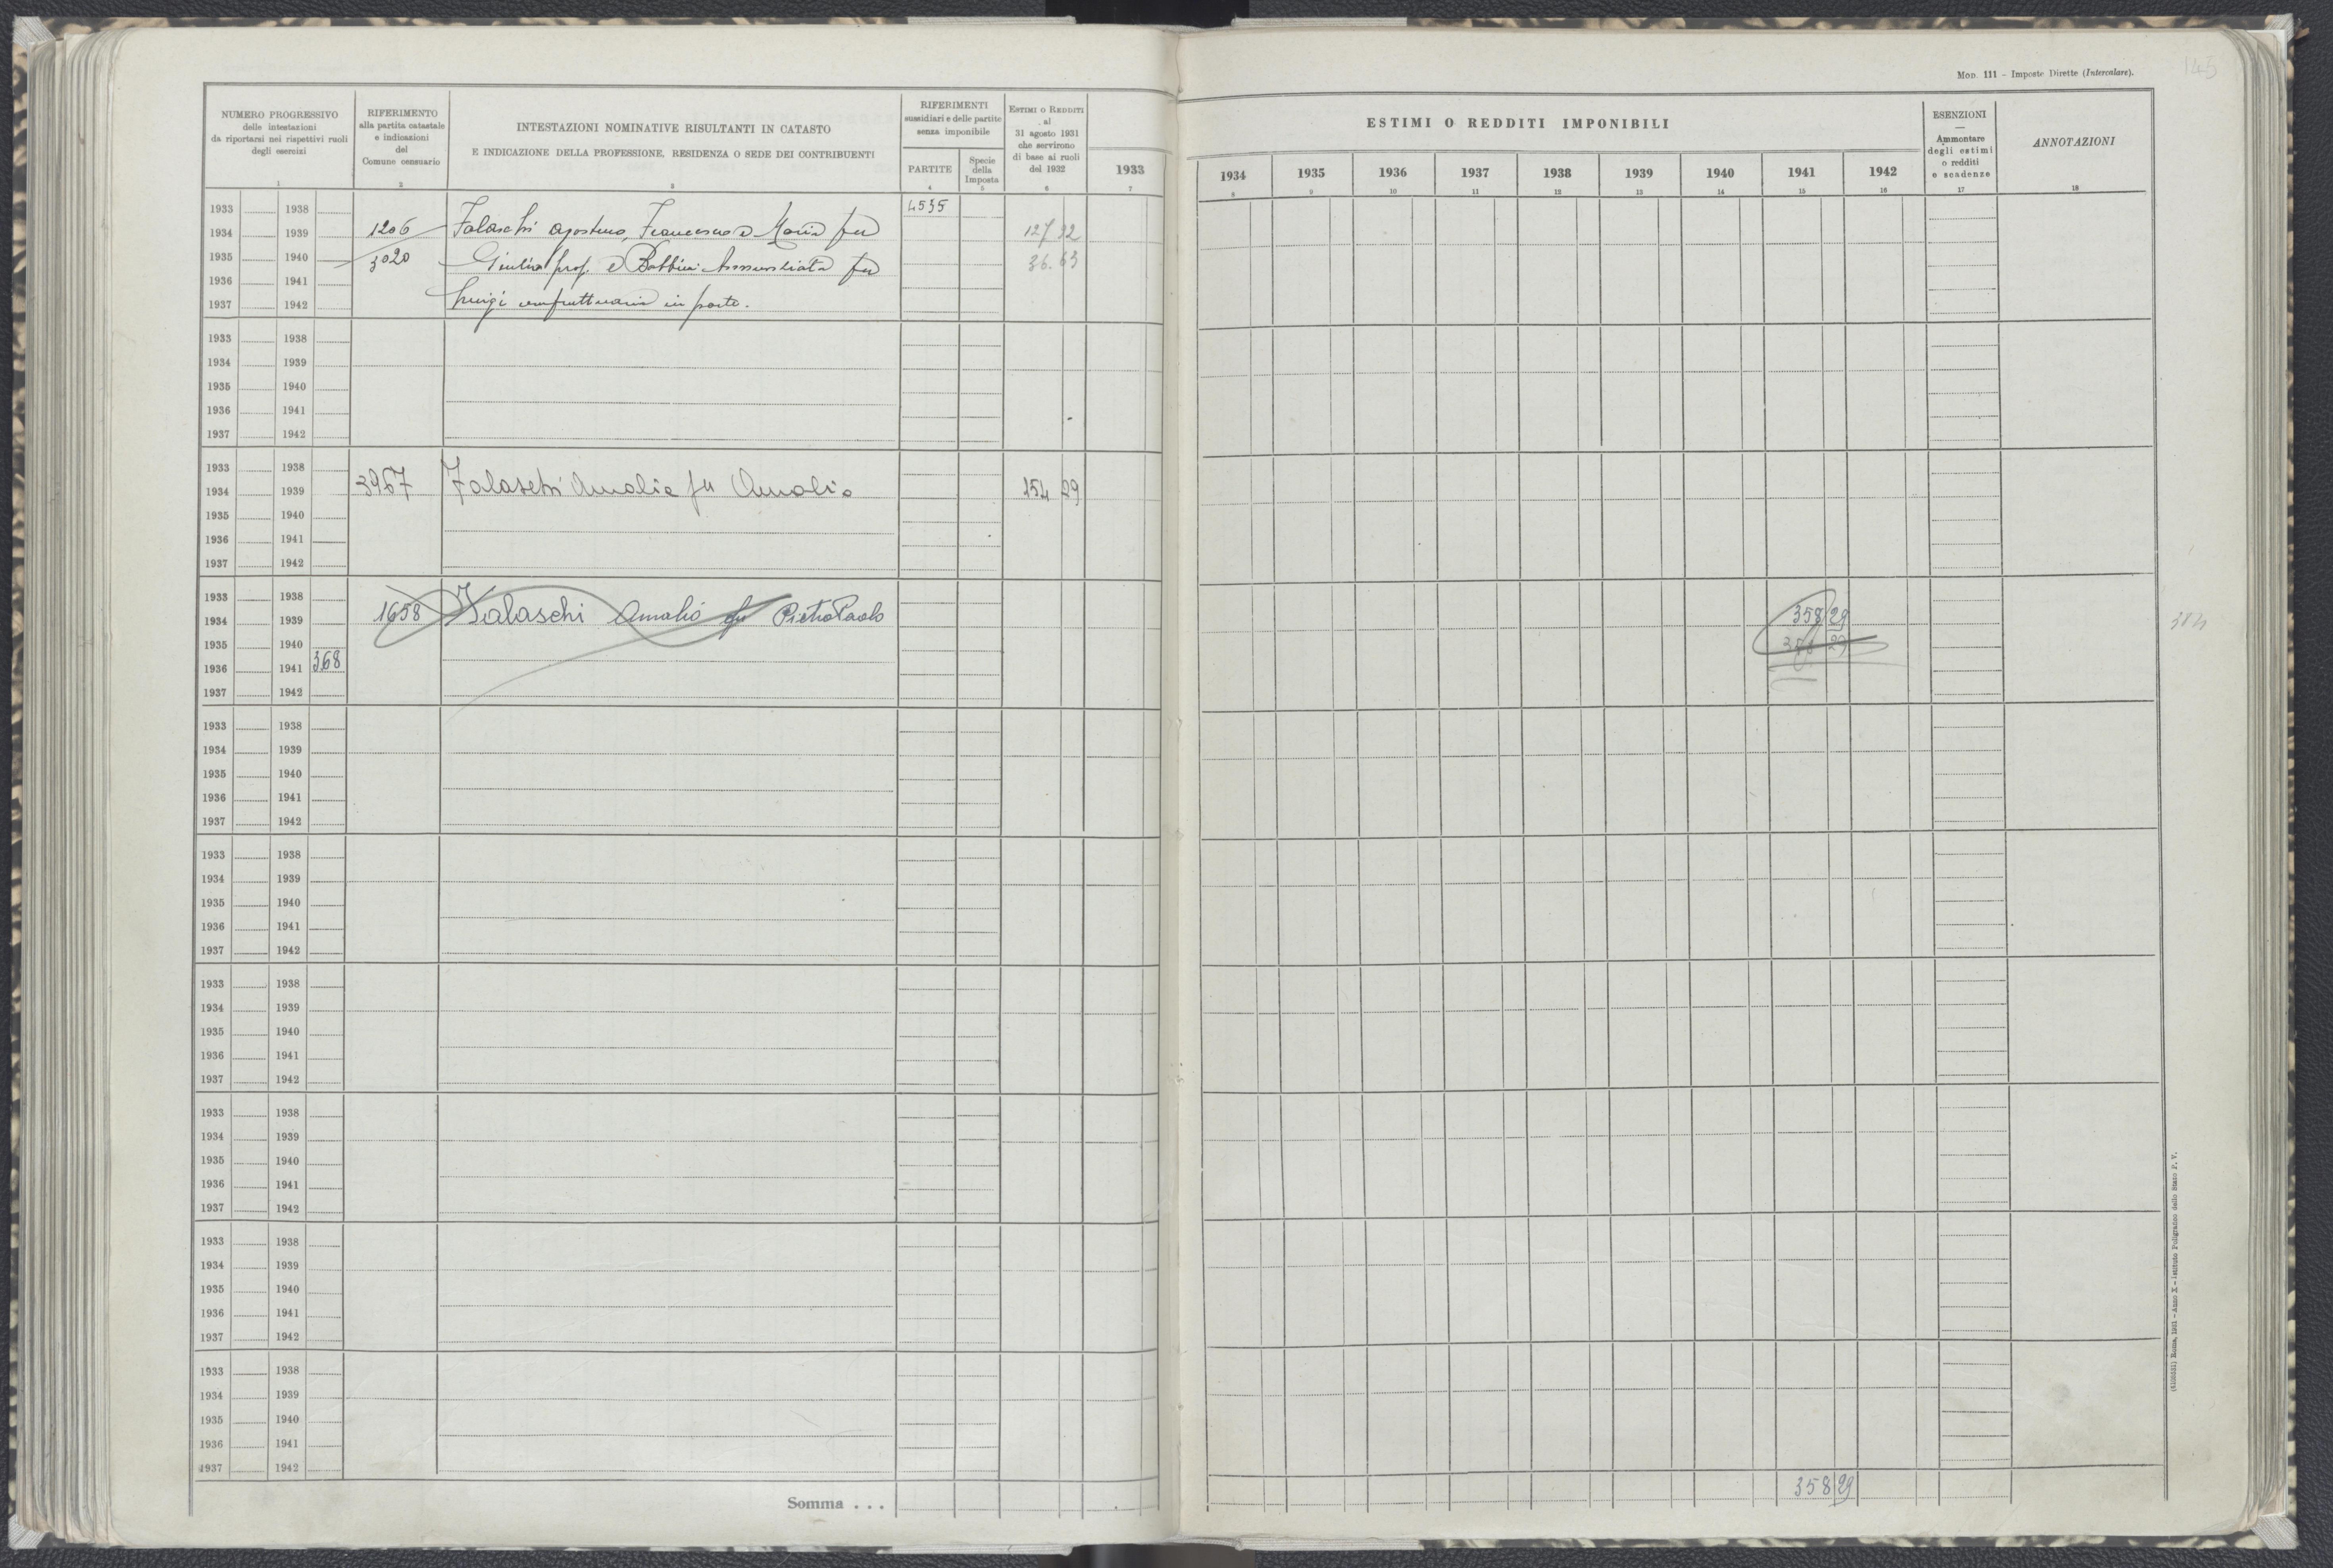 Mod. 111 - Imposte Dirette (Intercalare).
145
NUMERO PROGRESSIVO
delle intestazioni
da riportarsi nei rispettivi ruoli
degli esercizi
1
RIFERIMENTO
alla partita catastale
e indicazioni
del
Comune censuario
2
INTESTAZIONI NOMINATIVE RISULTANTI IN CATASTO
E INDICAZIONE DELLA PROFESSIONE, RESIDENZA O SEDE DEI CONTRIBUENTI
3
RIFERIMENTI
sussidiari e delle partite
senza imponibile
PARTITE
4
Specie
della
Imposta
5
Estimi o Redditi
al
31 agosto 1931
che servirono
di base ai ruoli
del 1932
6
1933
7
ESTIMI O REDDITI IMPONIBILI
1934 1935 1936 1937 1938 1939 1940 1941 1942
8 9 10 11 12 13 14 15 16
ESENZIONI
—
Ammontare
degli estimi
o redditi
e scadenze
17
ANNOTAZIONI
18
1933 1938 4535
1934 1939 1206 Falaschi Agostino, Francesco e Maria fu 127 92
1935 1940 3020 Giulio prop. e Bobbini Annunziata fu 36.63
1936 1941
1937 1942 Luigi usufruttuaria in parte.
1933 1938
1934 1939
1935 1940
1936 1941
1937 1942
1933 1938
1934 1939 3967 Falaschi Amalia fu Amalio 154 29
1935 1940
1936 1941
1937 1942
1933 1938
1934 1939 1658 Falaschi Amalio fu Pietro Paolo 358 29
1935 1940
1936 1941 368
1937 1942
1933 1938
1934 1939
1935 1940
1936 1941
1937 1942
1933 1938
1934 1939
1935 1940
1936 1941
1937 1942
1933 1938
1934 1939
1935 1940
1936 1941
1937 1942
1933 1938
1934 1939
1935 1940
1936 1941
1937 1942
1933 1938
1934 1939
1935 1940
1936 1941
1937 1942
1933 1938
1934 1939
1935 1940
1936 1941
1937 1942
Somma . . . 358 29
(4105031) Roma, 1931 - Anno X - Istituto Poligrafico dello Stato P. V.